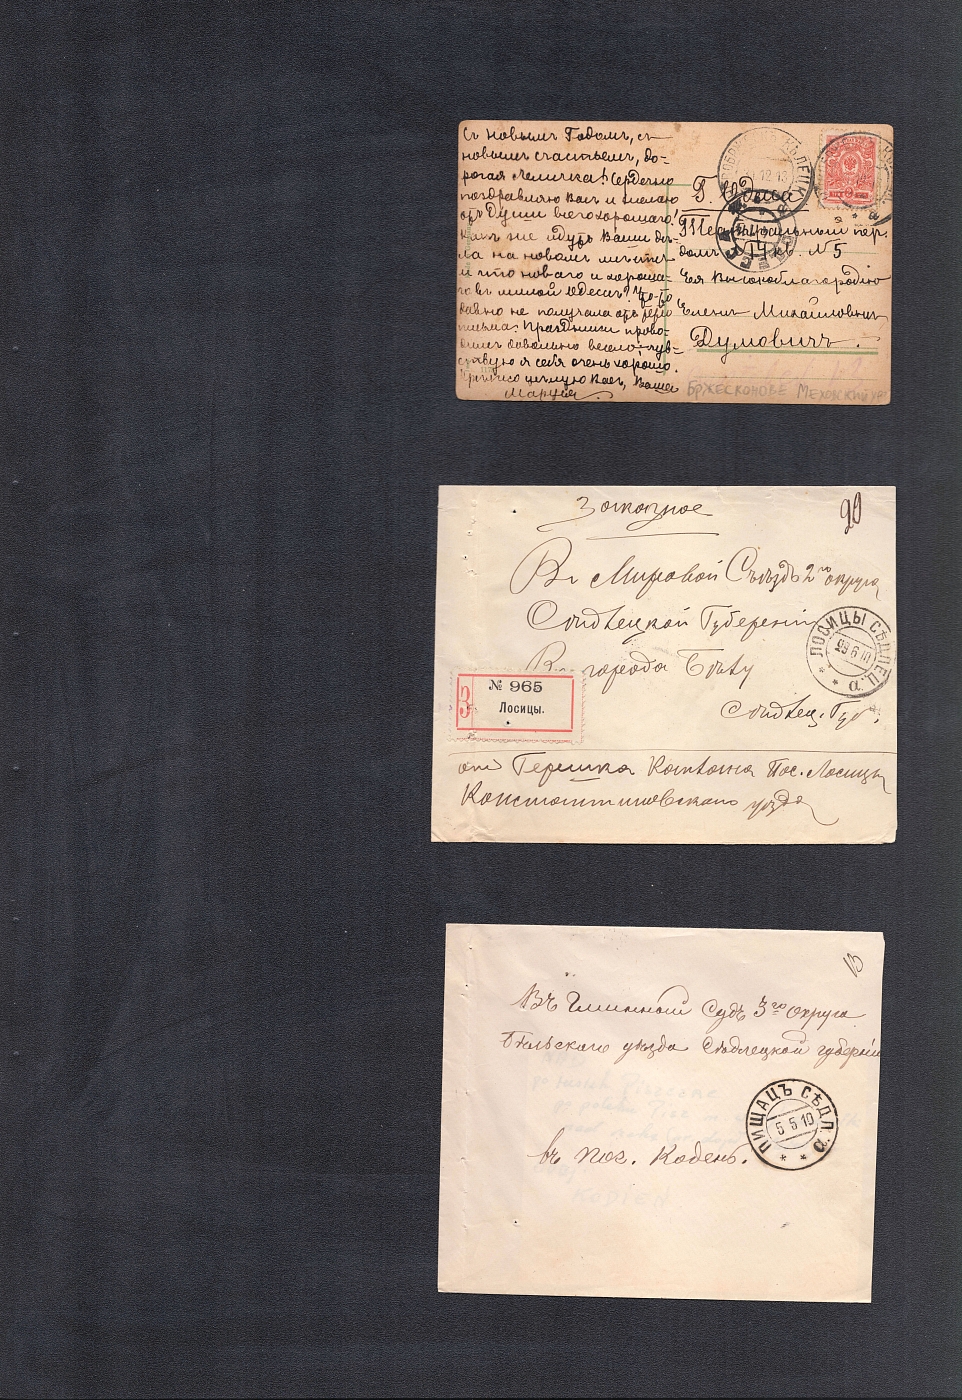 Съ новымъ Годомъ, съ
новымъ счастьемъ, до-
рогая Лемичка! Сердечно
поздравляю Васъ и желаю
отъ Души всего хорошаго!
Какъ же идутъ Ваши дѣ-
ла на новомъ мѣстѣ
и что новаго и хороша-
го въ милой Одессѣ? Что-то
давно не получала отъ
письма. Праздники прово-
димъ довольно весело, чув-
ствую я себя очень хорошо.
Крѣпко цѣлую Васъ, Ваша
Маруся.
СѢДЛЕЦК
12 13
ОДЕССА
Г. Одесса
Театральный пер.
домъ 14 кв. N 5
Ея Высокоблагородію
Еленѣ Михайловнѣ
Думовичъ.
БРЖЕСКОНОВЕ МЕХОВСКИЙ
Заказное
20
Въ Мировой Съѣздъ 2го округа
Сѣдлецкой Губерніи
Въ города Бѣлу
Сѣдлец. Губ.
ЛОСИЦЫ СѢДЛЕЦ.
99 6 10
а
З
№ 965
Лосицы.
отъ Гершка Пос. Лосицы
Константиновскаго уѣзда
13
Въ Гминный Судъ 3го Округа
Бѣльскаго уѣзда Сѣдлецкой губерніи
ПИЩАЦЪ СѢДЛ.
5 5 10
а
въ пос. Кодень.
KODIEN